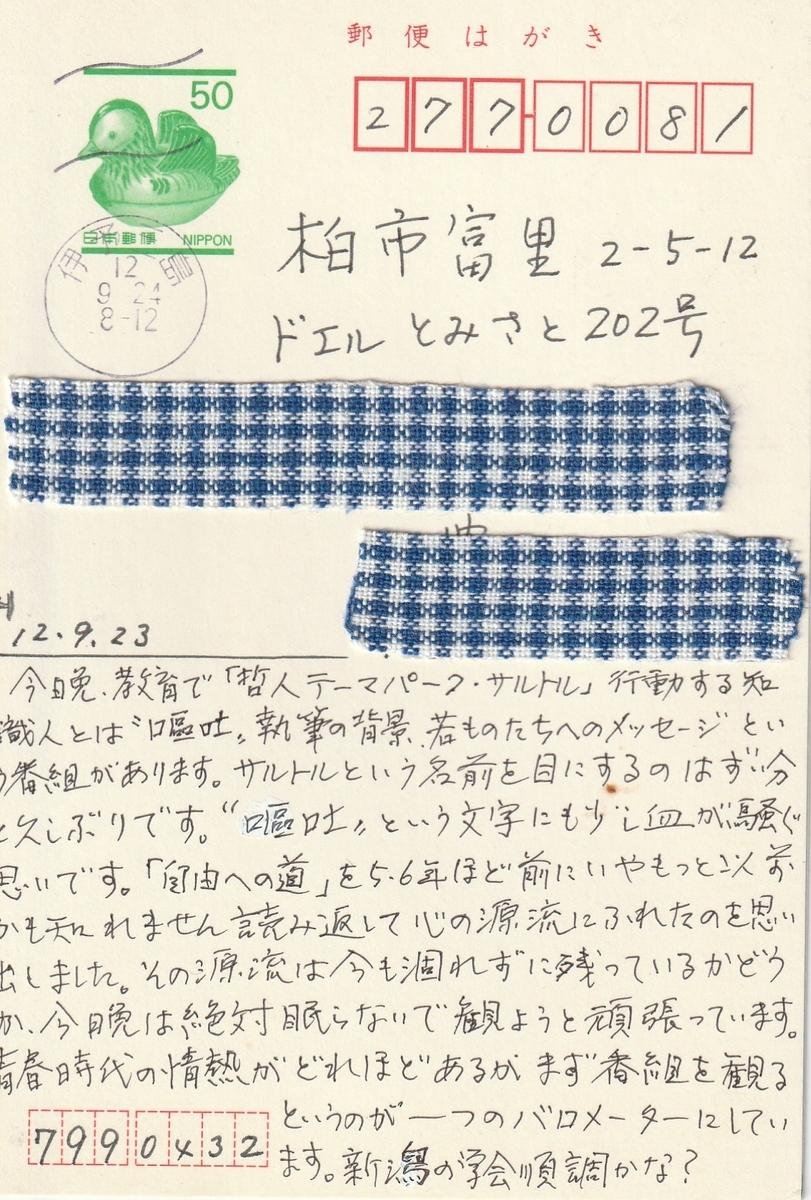 郵便はがき
50
日本郵便 NIPPON
277-0081
伊 島
12
9 24
8-12
柏市富里 2-5-12
ドエルとみさと202号
12.9.23
今日晩、教育で「哲人テーマパーク・サルトル」行動する知
識人とは〝嘔吐〟執筆の背景、若ものたちへのメッセージとい
う番組があります。サルトルという名前を目にするのはずい分
と久しぶりです。〝嘔吐〟という文字にも少し血が騒ぐ
思いです。「自由への道」を5.6年ほど前にいやもっと以前
かも知れません読み返して心の源流にふれたのを思い
出しました。その源流は今も涸れずに残っているかどう
か、今日晩は絶対眠らないで観ようと頑張っています。
青春時代の情熱がどれほどあるかまず番組を観る
というのが一つのバロメーターにしてい
ます。新潟の学会順調かな?
7990432